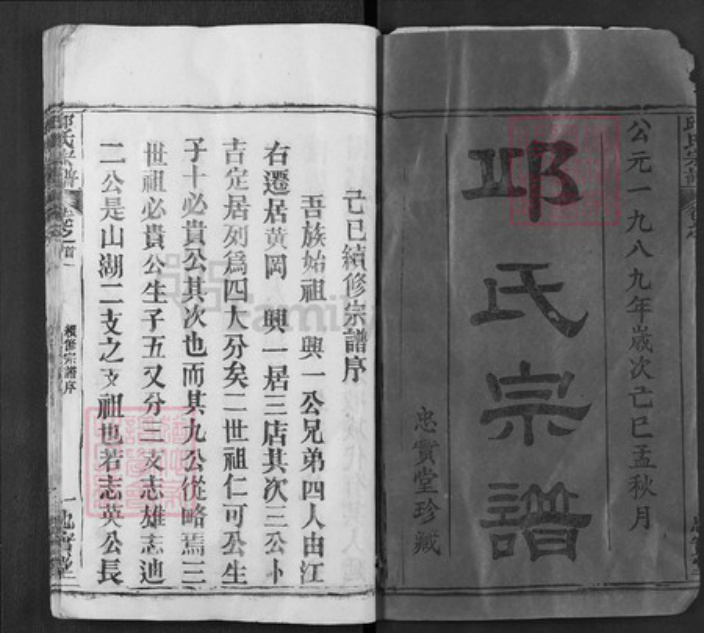 公元一九八九年歲次亡巳孟秋月
邛氏宗譜
忠實堂珍藏
己巳續修宗譜序
吾族始祖 興一公兄弟四人由江
右遷居黄岡 興一居三店其次三公卜
吉定居列爲四大分矣二世祖仁可公生
子十必貴公其次也而其九公從略焉三
世祖必貴公生子五又分三支志雄志迪
二公是山湖二支之支祖也若志英公長
邱氏宗譜
卷之首
續修宗譜序
一